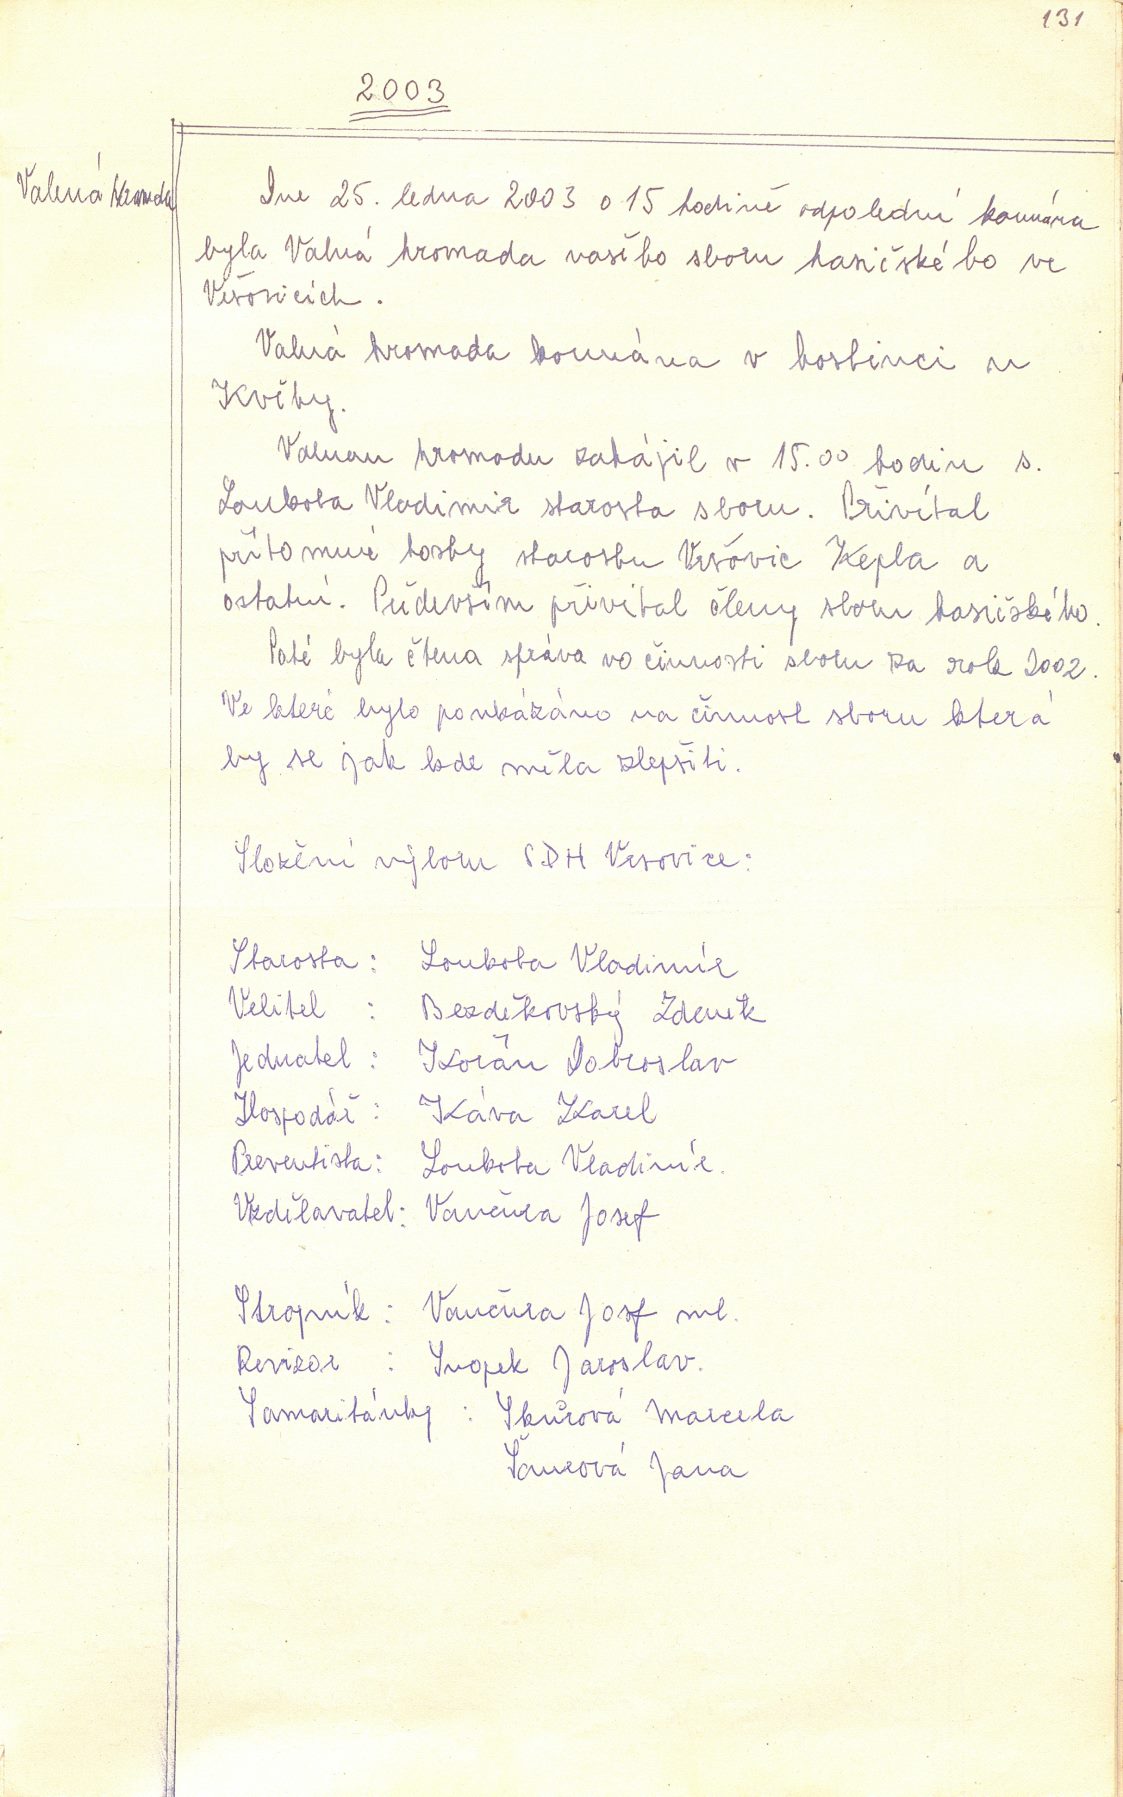 131
2003
Valná hromada
Dne 25. ledna 2003 o 15 hodině odpolední konána
byla Valná hromada našího sboru hasičského ve
Vršovicích.
Valná hromada konána v hostinci u
Kvíby.
Valnou hromadu zahájil v 15.00 hodin s.
Loukota Vladimír starosta sboru. Přivítal
přítomné hosty starostu Vršovic Kepla a
ostatní. Především přivítal členy sboru hasičského.
Poté byla čtena správa vo činnosti sboru za rok 2002.
Ve které bylo poukázáno na činnost sboru která
by se jak kde měla zlepšiti.
Složení výboru SDH Vrsovice:
Starosta: Loukota Vladimír
Velitel : Bezděkovský Zdeněk
Jednatel : Kořán Dobroslav
Hospodář : Káva Karel
Preventista: Loukota Vladimír.
Vzdělavatel: Vančura Josef
Strojník : Vančura Josf ml.
Revizor : Snopek Jaroslav.
Samaritánky : Skůrová Marcela
Šancová Jana